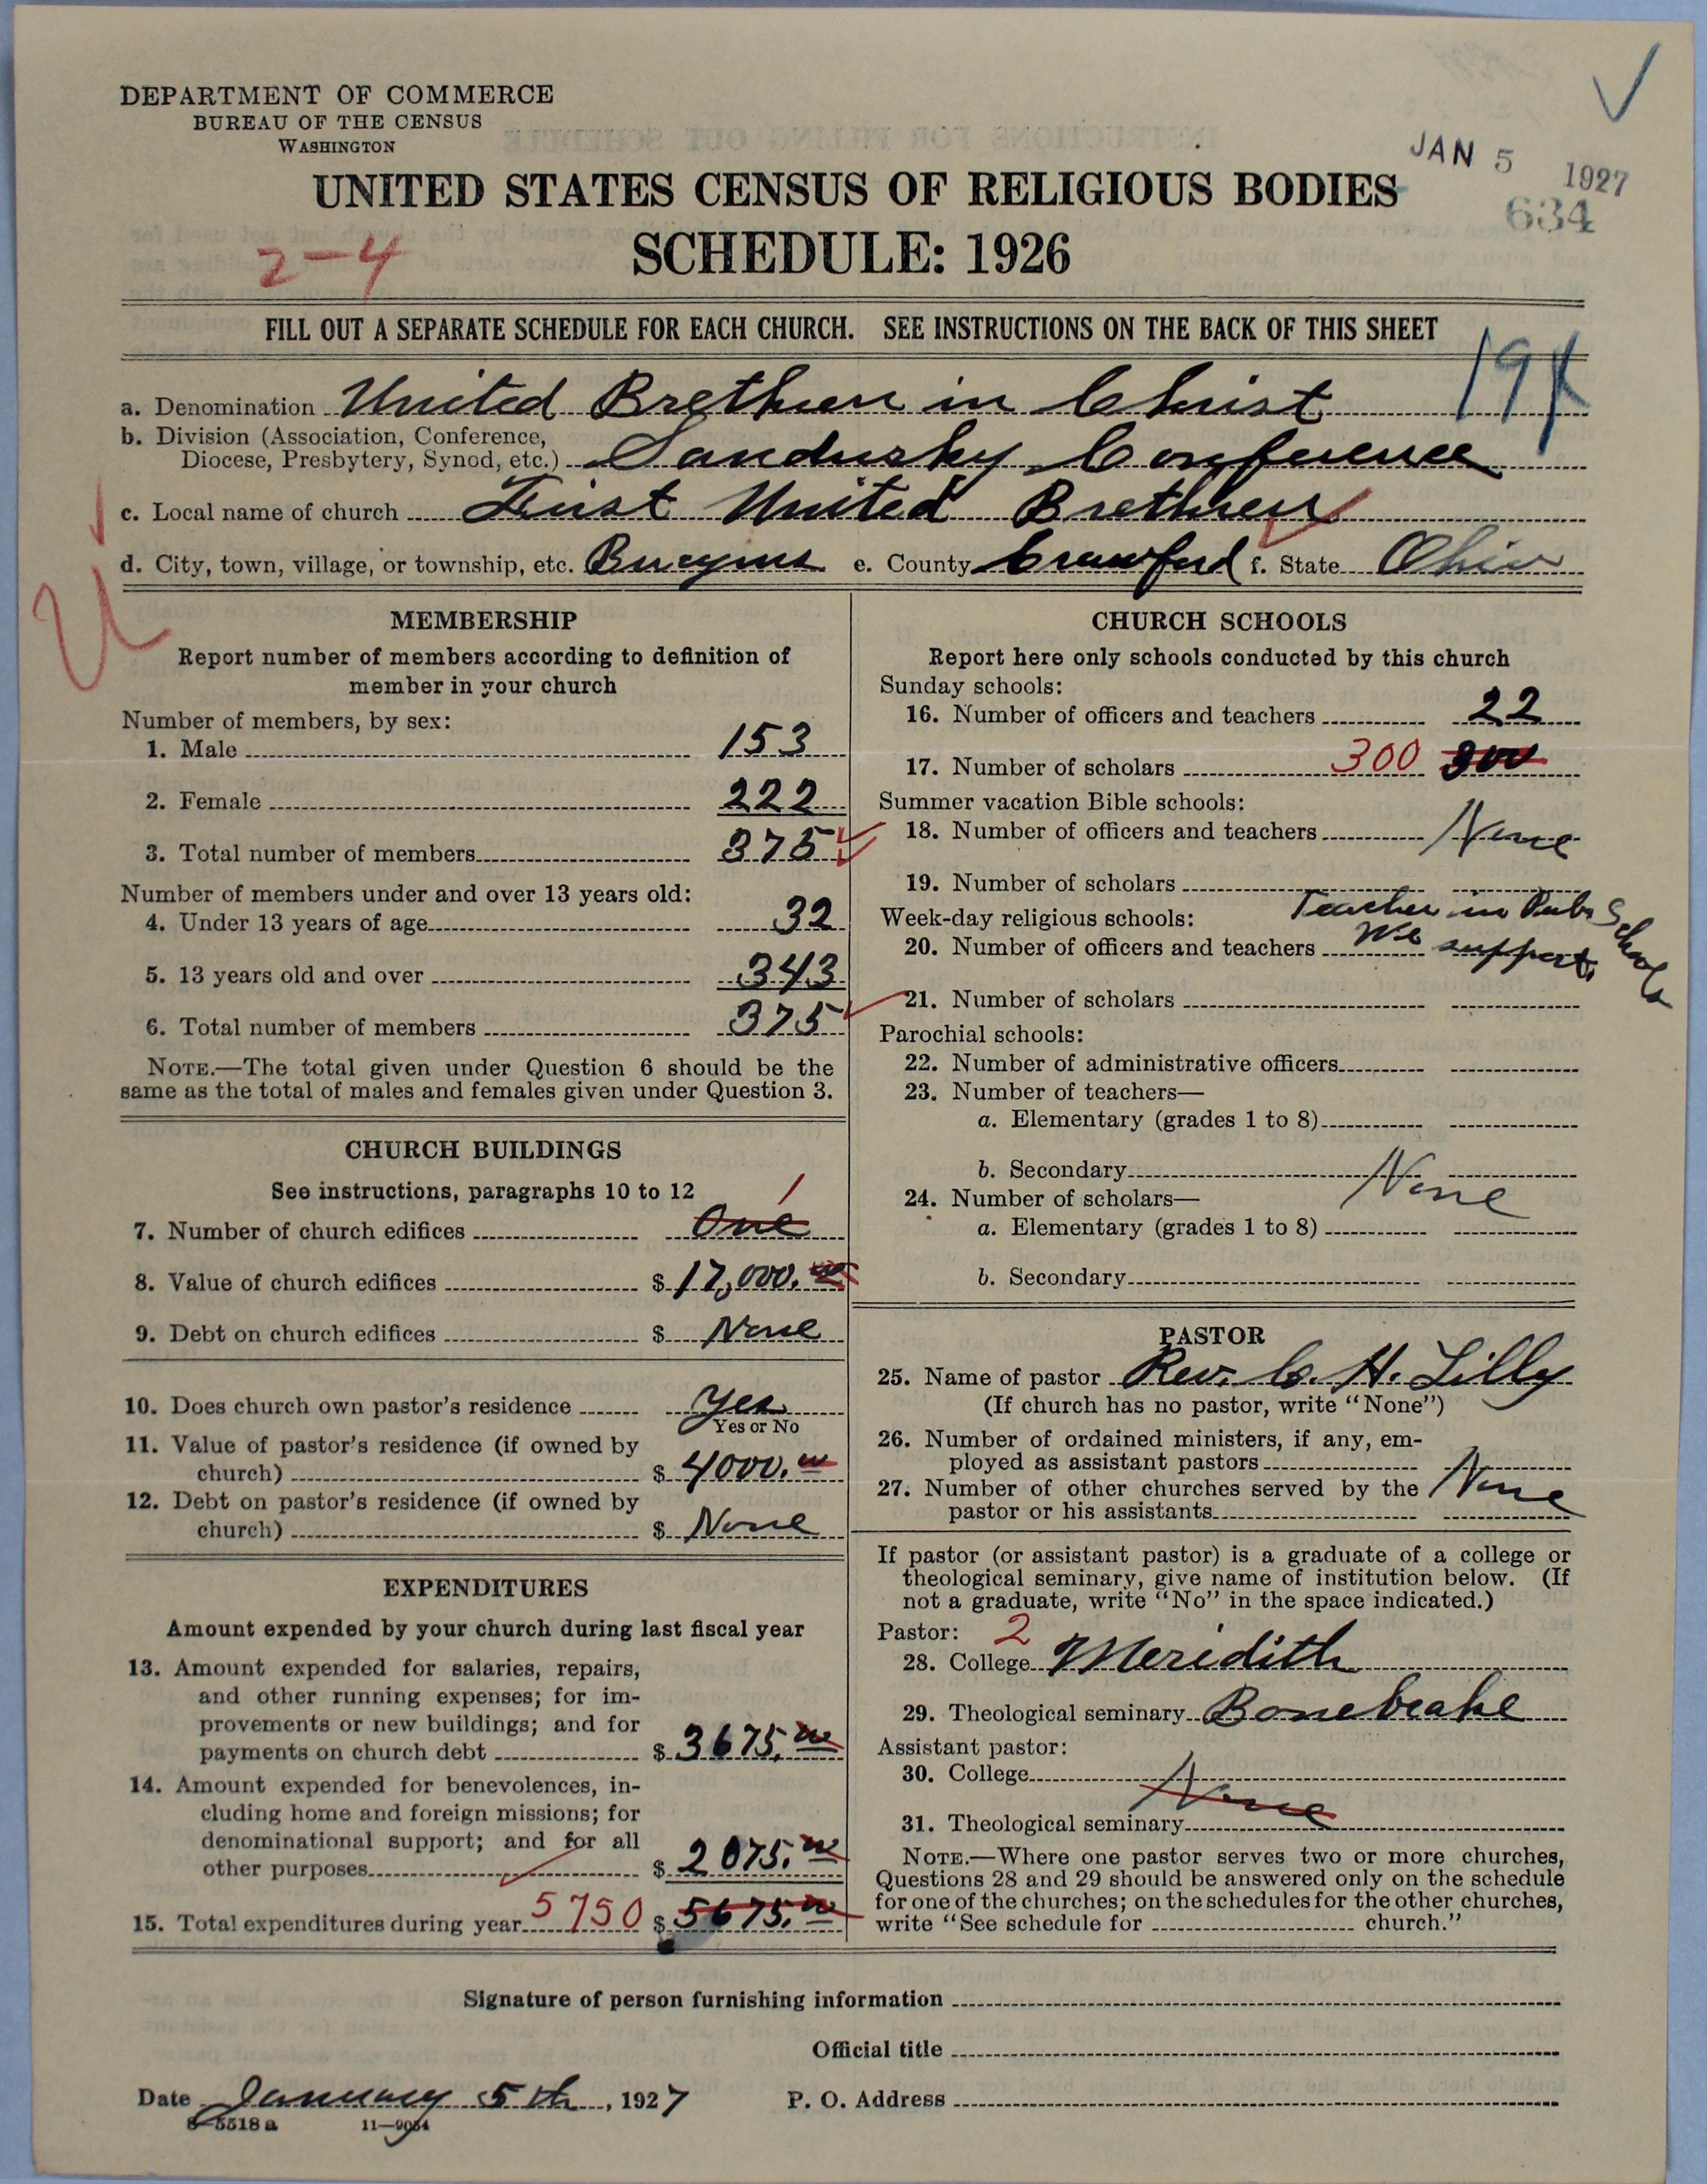 DEPARTMENT OF COMMERCE
BUREAU OF THE CENSUS
WASHINGTON
JAN 5 1927
634
UNITED STATES CENSUS OF RELIGIOUS BODIES
2-4
SCHEDULE: 1926
FILL OUT A SEPARATE SCHEDULE FOR EACH CHURCH. SEE INSTRUCTIONS ON THE BACK OF THIS SHEET
a. Denomination United Brethren in Christ
b. Division (Association, Conference,
Diocese, Presbytery, Synod, etc.) Sandusky Conference
c. Local name of church First United Brethren
d. City, town, village, or township, etc. Bucyrus e. County Crawford f. State Ohio
MEMBERSHIP
Report number of members according to definition of
member in your church
Number of members, by sex:
1. Male 153
2. Female 222
3. Total number of members 375
Number of members under and over 13 years old:
4. Under 13 years of age 32
5. 13 years old and over 343
6. Total number of members 375
NOTE.—The total given under Question 6 should be the
same as the total of males and females given under Question 3.
CHURCH BUILDINGS
See instructions, paragraphs 10 to 12
1
7. Number of church edifices One
8. Value of church edifices $ 17,000.00
9. Debt on church edifices $ None
10. Does church own pastor's residence Yes
Yes or No
11. Value of pastor's residence (if owned by
church) $ 4000.00
12. Debt on pastor's residence (if owned by
church) $ None
EXPENDITURES
Amount expended by your church during last fiscal year
13. Amount expended for salaries, repairs,
and other running expenses; for im-
provements or new buildings; and for
payments on church debt $ 3675.00
14. Amount expended for benevolences, in-
cluding home and foreign missions; for
denominational support; and for all
other purposes $ 2075.00
15. Total expenditures during year 5750 $ 5675.00
CHURCH SCHOOLS
Report here only schools conducted by this church
Sunday schools:
16. Number of officers and teachers 22
17. Number of scholars 300 300
Summer vacation Bible schools:
18. Number of officers and teachers None
19. Number of scholars
Week-day religious schools: Teacher in Pub. Schools
20. Number of officers and teachers We support
21. Number of scholars
Parochial schools:
22. Number of administrative officers
23. Number of teachers—
a. Elementary (grades 1 to 8)
b. Secondary None
24. Number of scholars—
a. Elementary (grades 1 to 8)
b. Secondary
PASTOR
25. Name of pastor Rev. C. H. Lilly
(If church has no pastor, write "None")
26. Number of ordained ministers, if any, em-
ployed as assistant pastors
27. Number of other churches served by the None
pastor or his assistants
If pastor (or assistant pastor) is a graduate of a college or
theological seminary, give name of institution below. (If
not a graduate, write "No" in the space indicated.)
Pastor: 2
28. College Meridith
29. Theological seminary Bonebrake
Assistant pastor:
30. College
None
31. Theological seminary
NOTE.—Where one pastor serves two or more churches,
Questions 28 and 29 should be answered only on the schedule
for one of the churches; on the schedules for the other churches,
write "See schedule for church."
Signature of person furnishing information
Official title
Date January 5th, 1927 P. O. Address
8-5518 a 11-9054